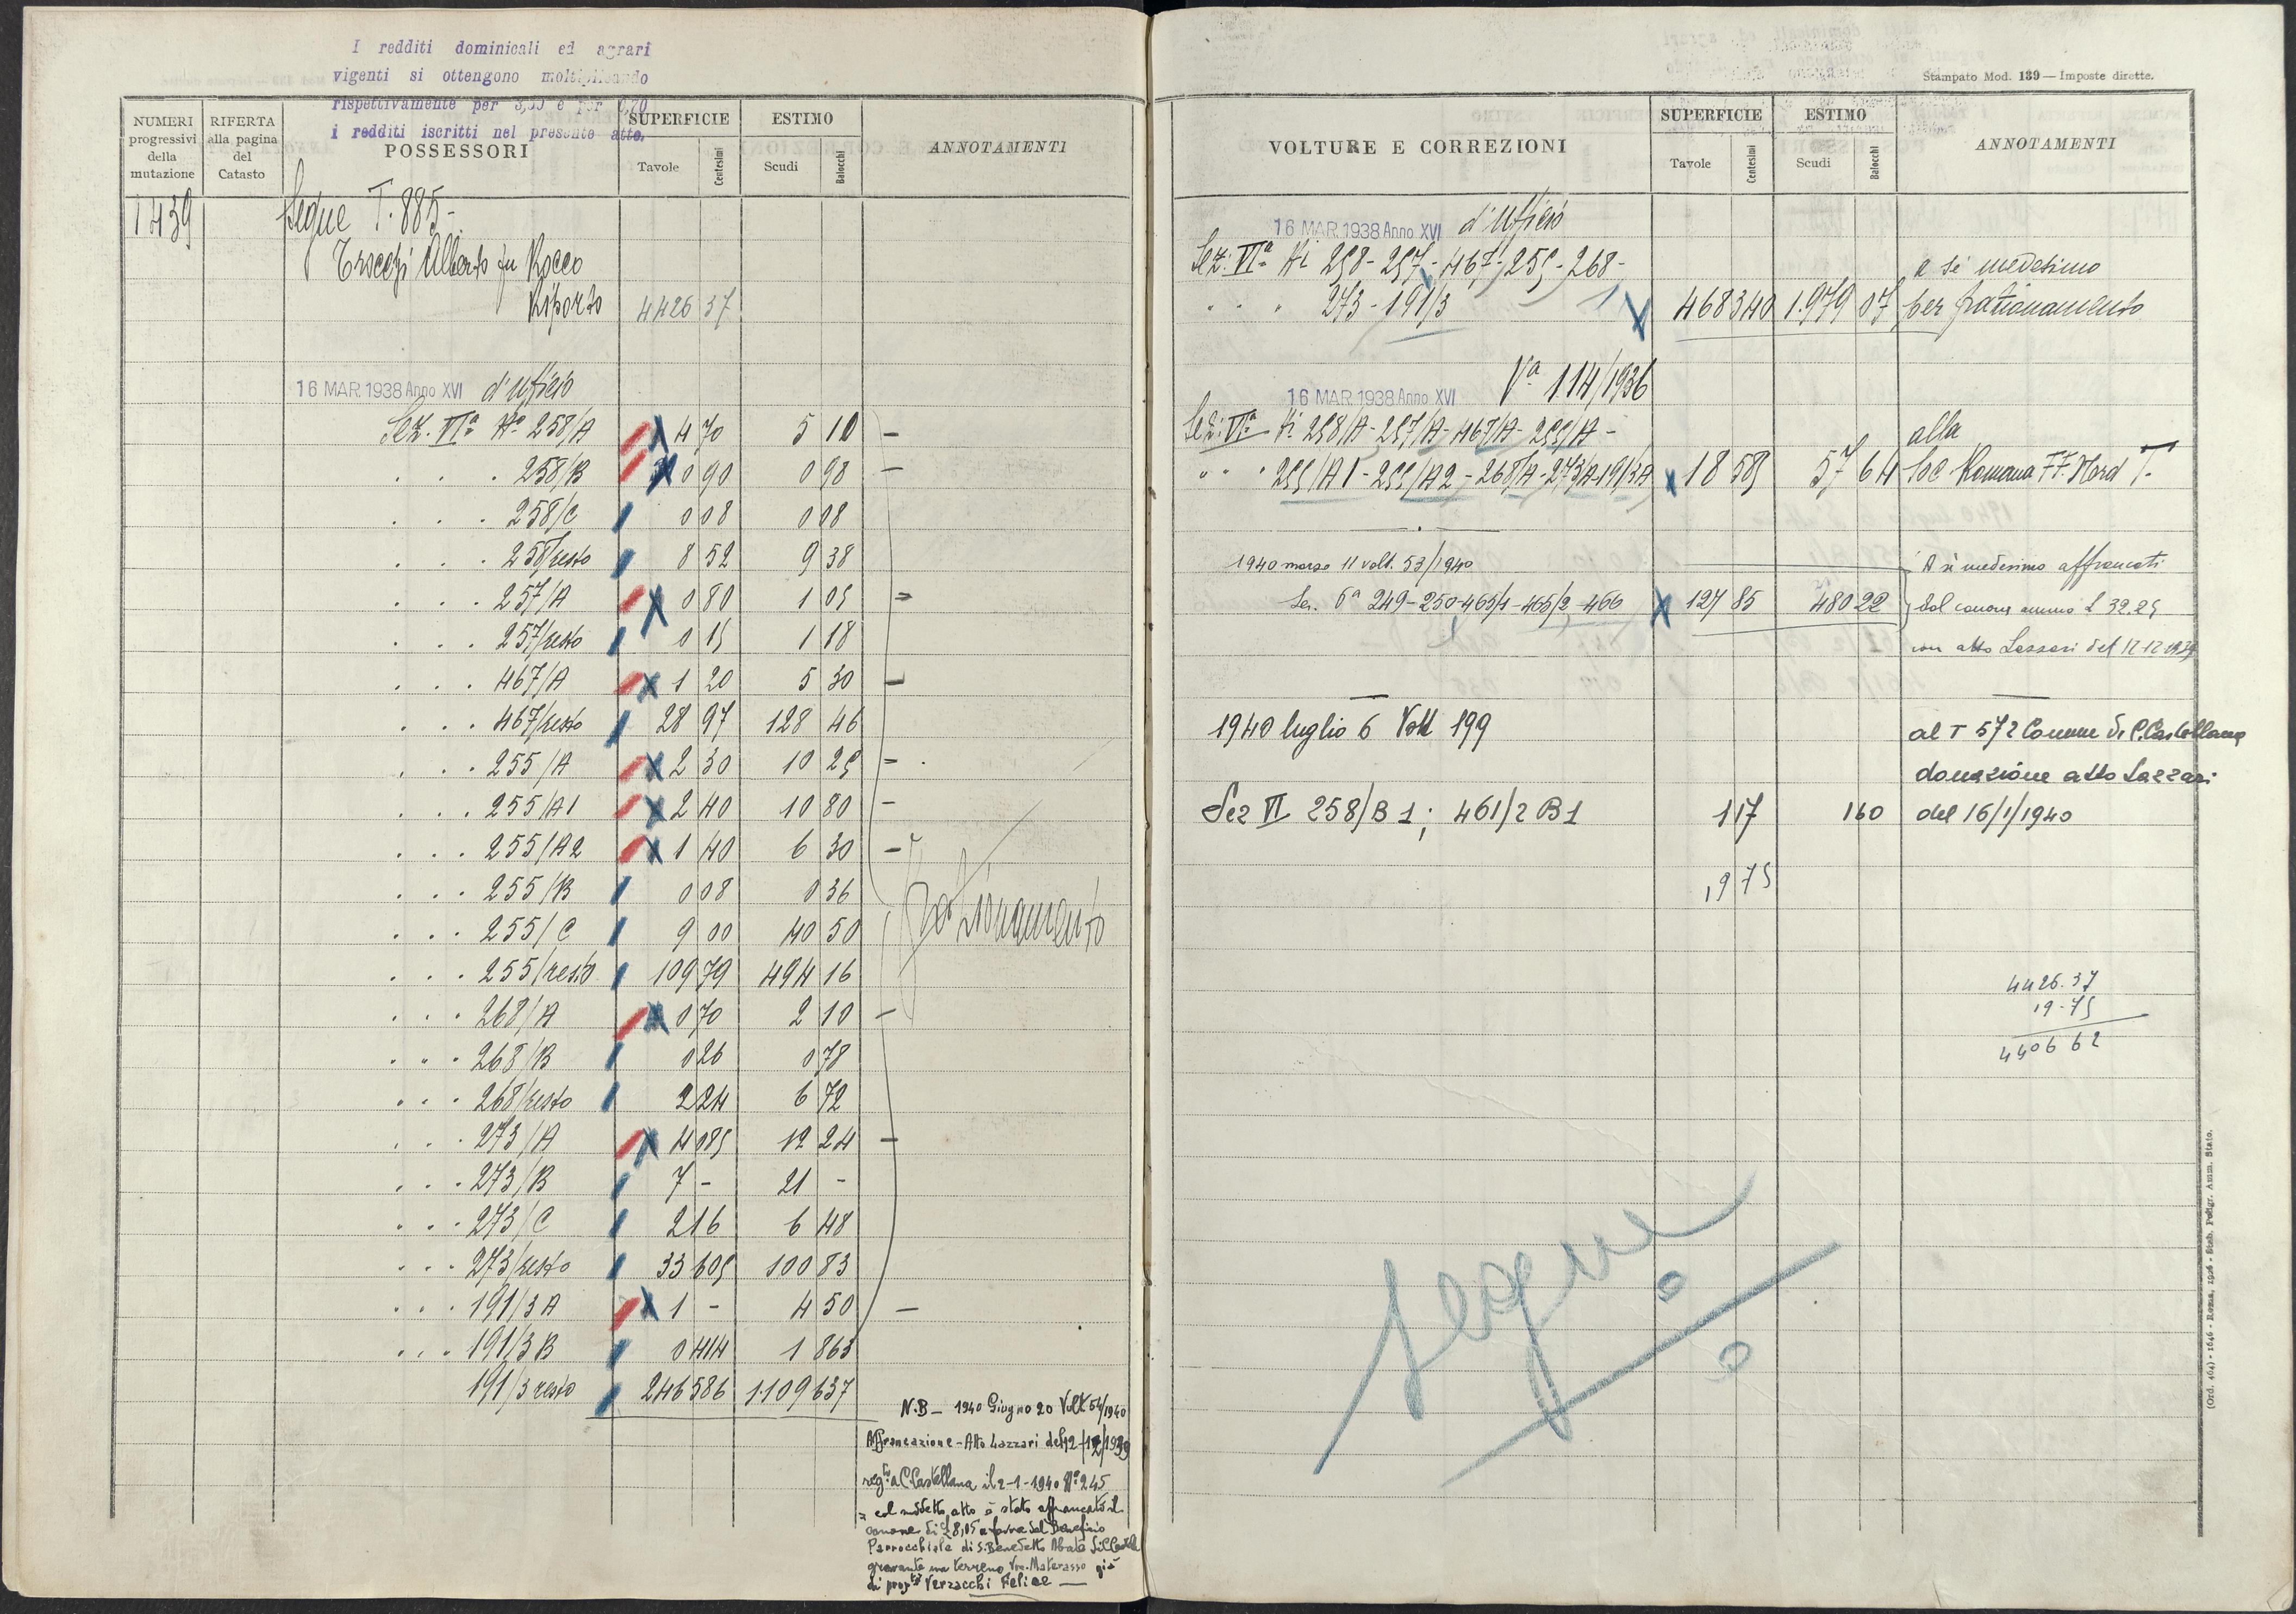 I redditi dominicali ed agrari
vigenti si ottengono moltiplicando
rispettivamente per 3,33 e per 0,70
i redditi iscritti nel presente atto.
NUMERI progressivi della mutazione
RIFERTA alla pagina del Catasto
POSSESSORI
SUPERFICIE
Tavole Centesimi
ESTIMO
Scudi Baiocchi
ANNOTAMENTI
1439 Segue T. 885-
Trocchi Alberto fu Rocco
Riporto 4426 37
16 MAR. 1938 Anno XVI d'Ufficio
Sez. VIa No 258/A 4 70 5 10 -
. . . 258/B 0 90 0 98 -
. . . 258/C 0 08 0 08
. . . 258/resto 8 52 9 38
. . . 257/A 0 80 1 05 =
. . . 257/resto 0 15 1 18
. . . 467/A 1 20 5 30 -
. . . 467/resto 28 97 128 46
. . . 255/A 2 30 10 25 =
. . . 255/A1 2 40 10 80 -
. . . 255/A2 1 40 6 30 -
. . . 255/B 0 08 0 36
. . . 255/C 9 00 40 50
Frazionamento
. . . 255/resto 109 79 494 16
. . . 268/A 0 70 2 10 -
. . . 268/B 0 26 0 78
. . . 268/resto 2 24 6 72
. . . 273/A 4 085 12 24 -
. . . 273/B 7 - 21 -
. . . 273/C 2 16 6 48
. . . 273/resto 33 605 100 83
. . . 191/3 A 1 - 4 50 -
. . . 191/3 B 0 414 1 863
191/3 resto 246 586 1.109 637
N.B - 1940 Giugno 20 Volt. 54/1940
Affrancazione - Atto Lazzari del 12/12/1939
regto a C. Castellana il 2-1-1940 No 245
= col suddetto atto è stato affrancato il
canone di £ 8,05 a favore del Beneficio
Parrocchiale di S. Benedetto Abate di C. Castell
gravante un terreno Voc. Materasso già
di propta Verzacchi Felice
Stampato Mod. 139 — Imposte dirette.
VOLTURE E CORREZIONI
SUPERFICIE
Tavole Centesimi
ESTIMO
Scudi Baiocchi
ANNOTAMENTI
16 MAR. 1938 Anno XVI d'Ufficio
Sez: VIa Ni 258 - 257 - 467 - 255 - 268 - a sé medesimo
" " " 273 - 191/3 468 340 1.979 07 per frazionamento
16 MAR. 1938 Anno XVI Va 114/1936
Sez: VIa Ni 258/A - 257/A - 467/A - 255/A - alla
" " " 255/A1 - 255/A2 - 268/A - 273/A - 191/3A 18 585 57 64 Soc Romana FF. Nord T.
1940 marzo 11 volt. 53/1940 A sé medesimo affrancati
Sez. 6a 249 - 250 - 465/1 - 465/2 - 466 127 85 480 22 dal canone annuo £ 32.25
con atto Lazzari del 12 12 1939
1940 luglio 6 Volt 199 al T 572 Comune di C. Castellana
donazione atto Lazzari
Sez VI 258/B 1; 461/2 B1 1 17 1 60 del 16/1/1940
19 75
4426.37
19.75
4406 62
segue
(Ord. 464) - 1646 - Roma, 1926 - Stab. Poligr. Amm. Stato.